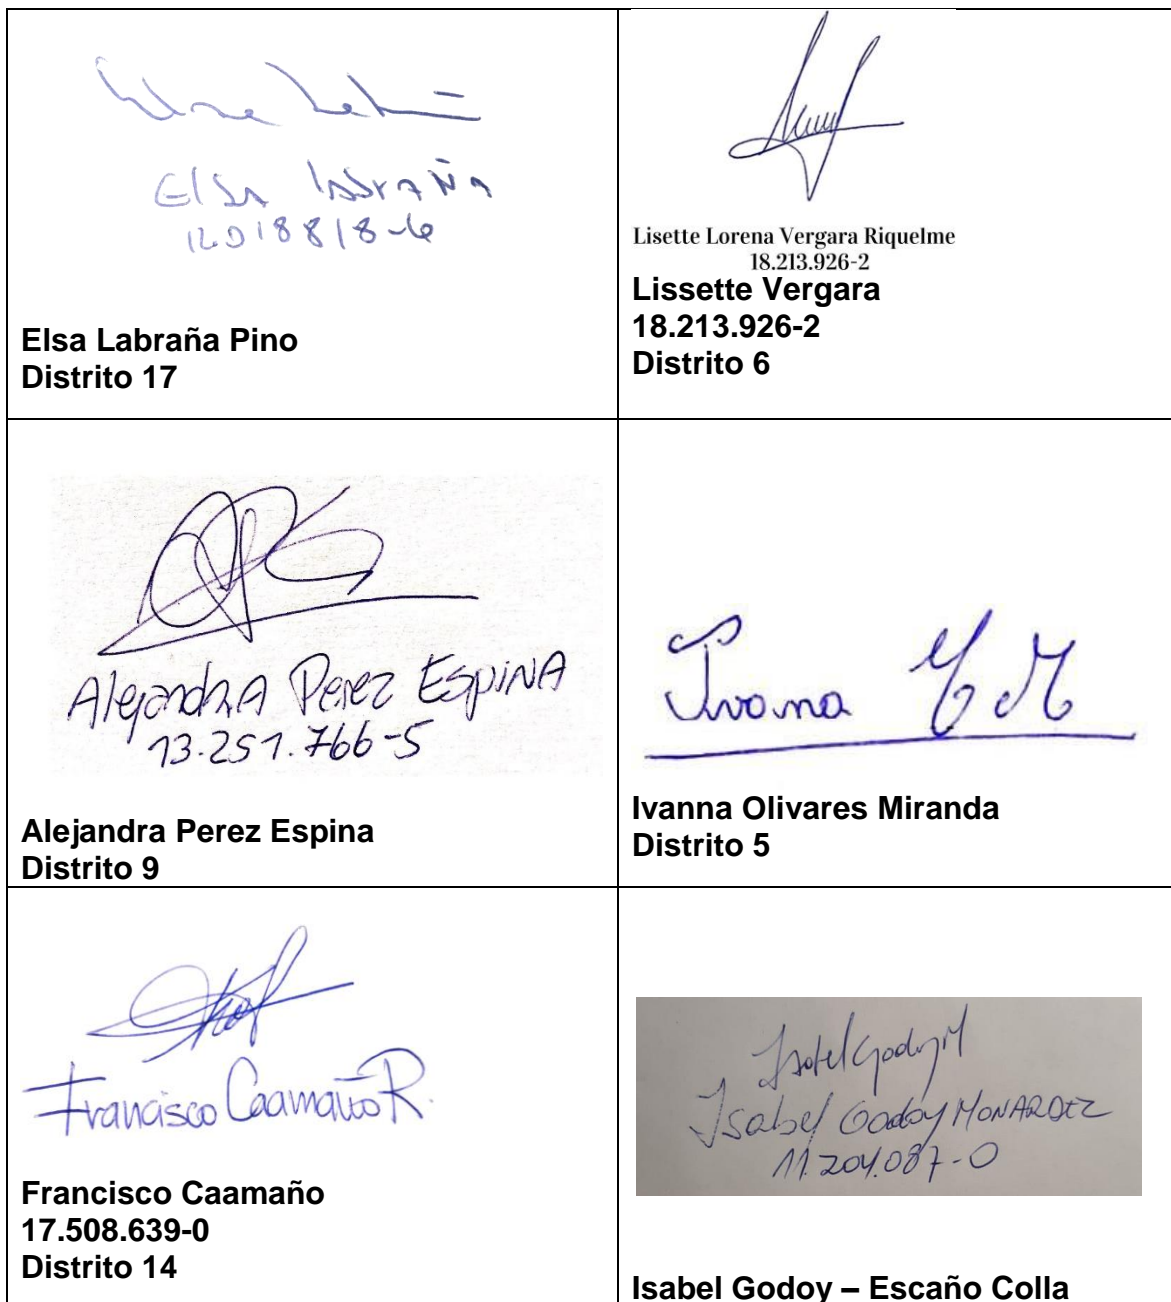 Elsa Labraña
12018818-6
Elsa Labraña Pino
Distrito 17
Lisette Lorena Vergara Riquelme
18.213.926-2
Lissette Vergara
18.213.926-2
Distrito 6
Alejandra Perez Espina
13.251.766-5
Alejandra Perez Espina
Distrito 9
Ivanna O M
Ivanna Olivares Miranda
Distrito 5
Francisco Caamaño R.
Francisco Caamaño
17.508.639-0
Distrito 14
Isabel Godoy M
Isabel Godoy Monardez
11.204.087-0
Isabel Godoy – Escaño Colla